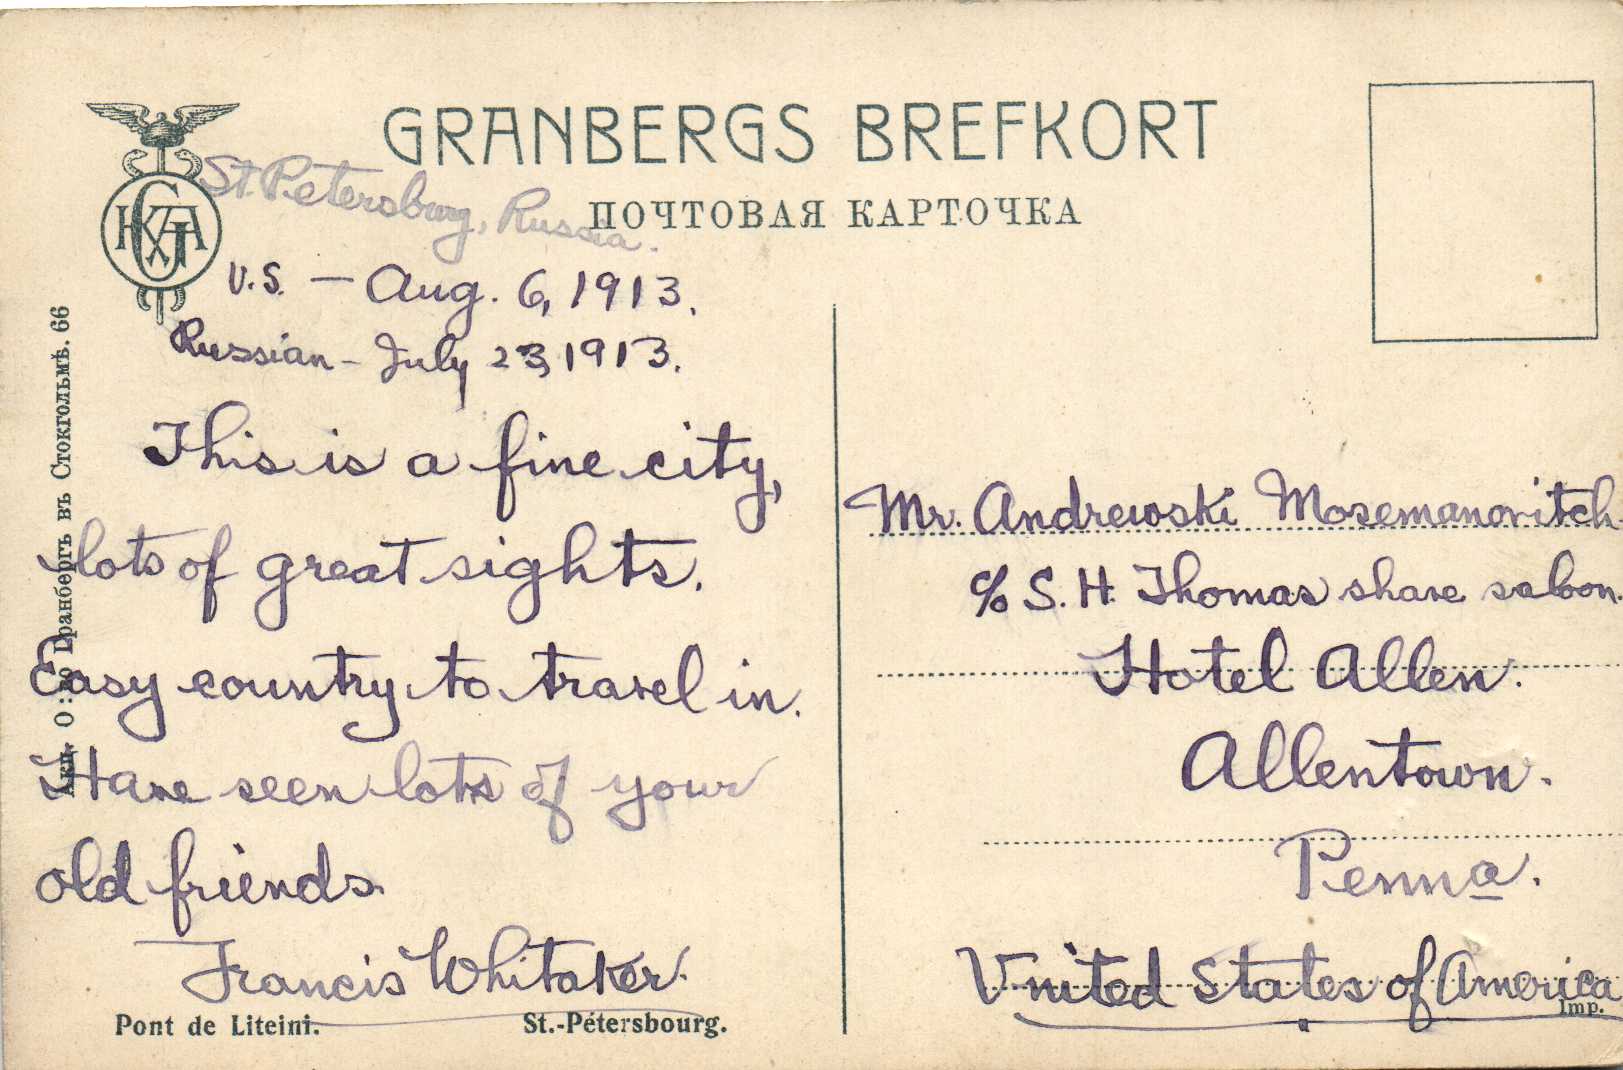 GRANBERGS BREFKORT
ПОЧТОВАЯ КАРТОЧКА
St. Petersburg, Russia.
U.S. — Aug. 6, 1913.
Russian - July 23, 1913.
This is a fine city,
lots of great sights.
Easy country to travel in.
Have seen lots of your
old friends.
Francis Whitaker.
Pont de Liteini. St.-Pétersbourg.
Акц. О:во Гранбергъ въ Стокгольмѣ. 66
Mr. Andrewski Mosemanovitch
c/o S. H. Thomas shave saloon.
Hotel Allen.
Allentown.
Penna.
United States of America
Imp.